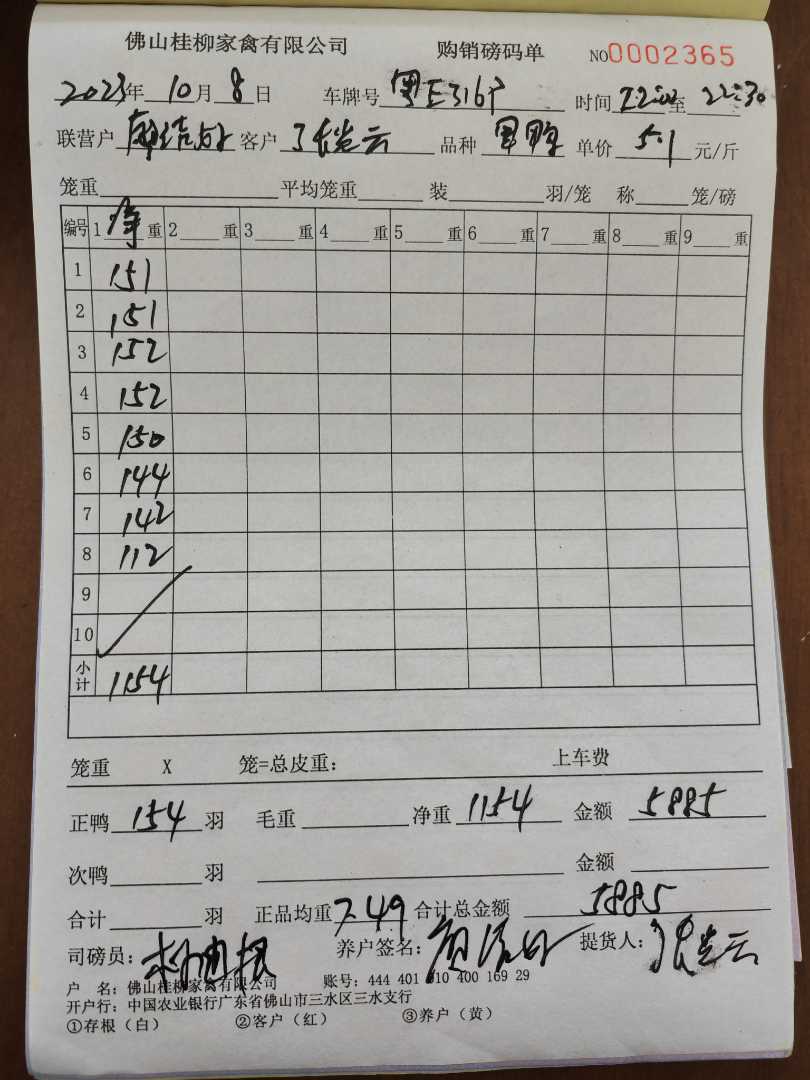 佛山桂柳家禽有限公司 购销磅码单 NO0002365
2023年10月8日 车牌号 粤E316 时间 22:00至22:30
联营户 客户 张 云 品种 单价 5.1 元/斤
笼重 平均笼重 装 羽/笼 称 笼/磅
编号 1 净 重 2 重 3 重 4 重 5 重 6 重 7 重 8 重 9 重
1 151
2 151
3 152
4 152
5 150
6 144
7 142
8 112
9
10
小计 1154
笼重 X 笼=总皮重: 上车费
正鸭 154 羽 毛重 净重 1154 金额 5885
次鸭 羽 金额
合计 羽 正品均重 7.49 合计总金额 5885
司磅员: 养户签名: 提货人: 张 云
户 名: 佛山桂柳家禽有限公司 账号: 444 401 010 400 169 29
开户行: 中国农业银行广东省佛山市三水区三水支行
①存根（白） ②客户（红） ③养户（黄）